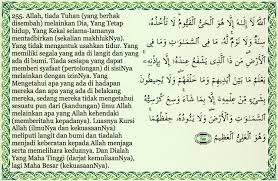 255. Allah, tiada Tuhan (yang berhak
disembah) melainkan Dia, Yang Tetap
hidup, Yang Kekal selama-lamanya
mentadbirkan (sekalian makhlukNya).
Yang tidak mengantuk usahkan tidur. Yang
memiliki segala yang ada di langit dan yang
ada di bumi. Tiada sesiapa yang dapat
memberi syafaat (pertolongan) di sisiNya
melainkan dengan izinNya. Yang
Mengetahui apa yang ada di hadapan
mereka dan apa yang ada di belakang
mereka, sedang mereka tidak mengetahui
sesuatu pun dari (kandungan) ilmu Allah
melainkan apa yang Allah kehendaki
(memberitahu kepadanya). Luasnya Kursi
Allah (ilmuNya dan kekuasaanNya)
meliputi langit dan bumi dan tiadalah
menjadi keberatan kepada Allah menjaga
serta memelihara keduanya. Dan Dialah
Yang Maha Tinggi (darjat kemuliaanNya),
lagi Maha Besar (kekuasaanNya).
ٱللَّهُ لَآ إِلَٰهَ إِلَّا هُوَ ٱلْحَىُّ ٱلْقَيُّومُ لَا تَأْخُذُهُۥ
سِنَةٌ وَلَا نَوْمٌ لَّهُۥ مَا فِى ٱلسَّمَٰوَٰتِ وَمَا فِى
ٱلْأَرْضِ مَن ذَا ٱلَّذِى يَشْفَعُ عِندَهُۥٓ إِلَّا بِإِذْنِهِۦ
يَعْلَمُ مَا بَيْنَ أَيْدِيهِمْ وَمَا خَلْفَهُمْ وَلَا يُحِيطُونَ
بِشَىْءٍ مِّنْ عِلْمِهِۦٓ إِلَّا بِمَا شَآءَ وَسِعَ كُرْسِيُّهُ
ٱلسَّمَٰوَٰتِ وَٱلْأَرْضَ وَلَا يَـُٔودُهُۥ حِفْظُهُمَا
وَهُوَ ٱلْعَلِىُّ ٱلْعَظِيمُ